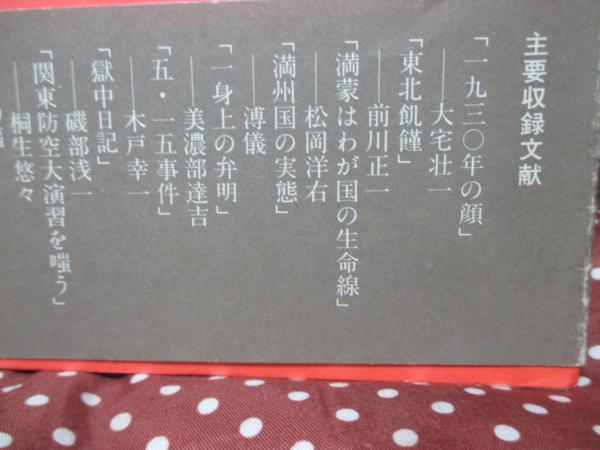 主要収録文献
「一九三〇年の顔」
——大宅壮一
「東北飢饉」
——前川正一
「満蒙はわが国の生命線」
——松岡洋右
「満州国の実態」
——溥儀
「一身上の弁明」
——美濃部達吉
「五・一五事件」
——木戸幸一
「獄中日記」
——磯部浅一
「関東防空大演習を嗤う」
——桐生悠々